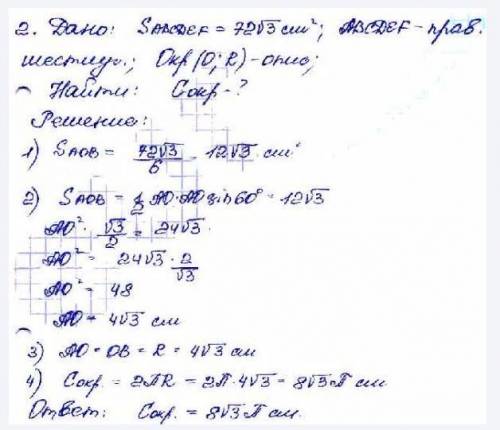 2. Дано: SABCDEF = 72√3 см²; ABCDEF - прав.
шестиуг.; Окр (O; R) - опис;
Найти: Cокр - ?
Решение:
1) SAOB = 72√3/6 = 12√3 см²
2) SAOB = 1/2 AO·AO sin 60° = 12√3
AO² · √3/2 = 24√3
AO² = 24√3 · 2/√3
AO² = 48
AO = 4√3 см
3) AO = OB = R = 4√3 см
4) Cокр. = 2πR = 2π·4√3 = 8√3π см
Ответ: Cокр. = 8√3π см.